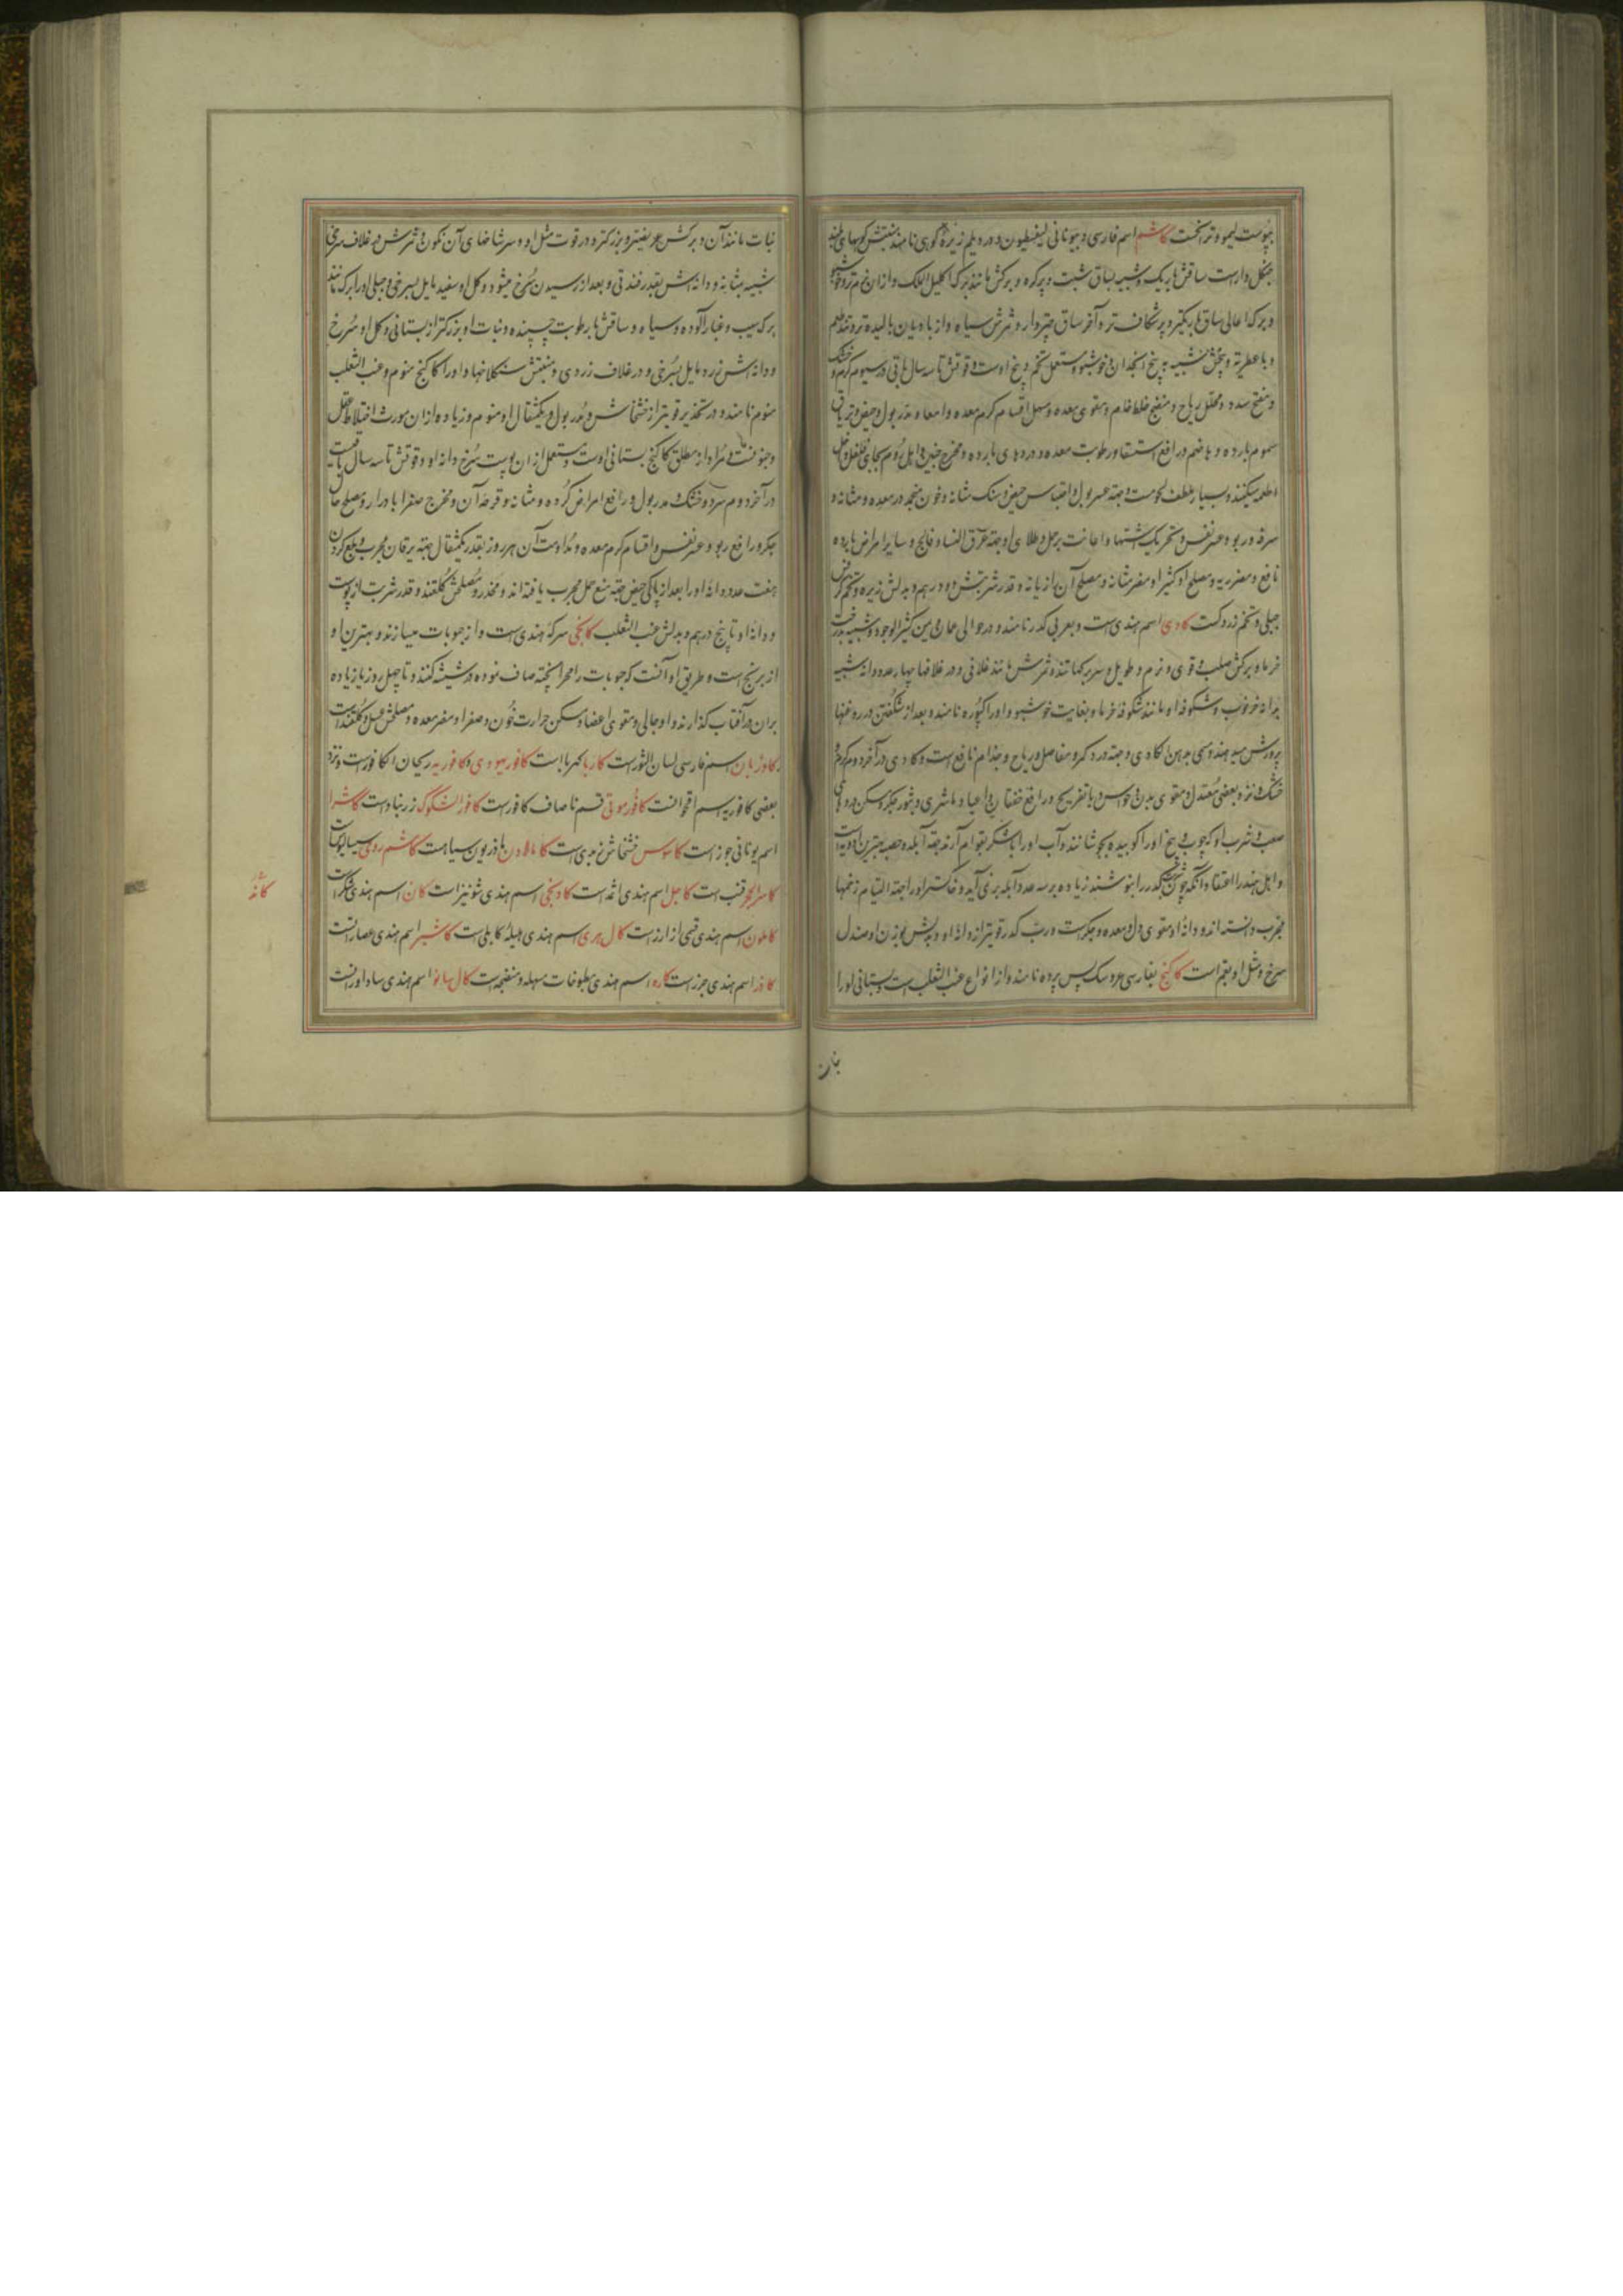 بپوست لیمو و ترنجست کاشم اسم فارسی و بیونانی لیغسطیون و در دیلم زیرهٔ کوهی نامند منبتش کوههای بلند
جنکل وارست ساقش باریک و شبیه بساق شبت و پرکره و برکش مانند برک اکلیل الملک و از ان نرم تر و خوشبو
و برک اعالی ساق باریکتر و پرشکاف تر و آخر ساق چتردار و ثمرش سیاه و از بادیان بالیده تر و تند طعم
و با عطریة و بیخش شبیه به بیخ انجدان و خوشبو و مستعمل تخم و بیخ اوست و قوتش تا سه سال باقی در سیوم کرم و خشک
و مفتح سدد و محلل ریاح و منضج خلط خام و مقوی معده و مسهل اقسام کرم معده و امعا و مدر بول و حیض و تریاق
سموم بارده و هاضم و رافع استسقا و رطوبت معده و دردهای بارده و مخرج جنین و اهل روم بجای فلفل داخل
اطعمه میکنند و بسیار ملطف لحومست و جهة عسر بول و احتباس حیض و سنک مثانه و خون منجمد در معده و مثانه و
سرفه و ربو و عسر نفس و تحریک اشتها و اعانت بر حمل و طلای او جهة عرق النسا و فالج و سایر امراض بارده
نافع و مضر ریه و مصلح او کثیرا و مضر مثانه و مصلح آن رازیانه و قدر شربتش دو درهم و بدلش زیره و تخم کرفس
جبلی و تخم زردکست کادی اسم هندی است و بعربی کدر نامند و در حوالی عمان و یمن کثیر الوجود و شبیه بدرخت
خرما و برکش صلب و قوی و نرم و طویل و سر برکها تند و ثمرش مانند غلافی و در غلافها چهار عدد دانه شبیه
بدانه خرنوب و شکوفه او مانند شکوفه خرما و بغایت خوشبو و اورا کپوره نامند و بعد از شکفتن در روغنها
پرورش میدهند و مسمی بدهن الکادی و جهة درد کمر و مفاصل و ریاح و جذام نافع است و کادی در آخر دوم کرم و
خشک و نزد بعضی معتدل و مقوی بدن و حواس و با تفریح و رافع خفقان و اعیا و ماشری و بثور جکر و مسکن دردهای
صعب و شرب او که چوب و بیخ اورا کوبیده بجوشانند و آب اورا با شکر بقوام آرند جهة آبله و حصبه بهترین ادویه است
و اهل هند را اعتقاد آنکه چون شربت کدر را بنوشند زیاده بر سه عدد آبله برنمی آید و خاکستر او را جهة التیام زخمها
مجرب دانسته اند و دانهٔ او مقوی دل و معده و جکرست و رب کدر قویتر از دانهٔ او و بدلش بوزن او صندل
سرخ و مثل او بقم است کاکنج بفارسی عروسک پس پرده نامند و از انواع عنب الثعلب است و بستانی اورا
نبات
نبات مانند آن و برکش عریضتر و بزرکتر و در قوت مثل او و سر شاخهای آن نکون و ثمرش در غلاف سرخی
شبیه بمثانه و دانه اش بقدر فندقی و بعد از رسیدن سرخ میشود و کل او سفید مایل بسرخی و جبلی اورا برک مانند
برک سیب و غبار آلوده و سیاه و ساقش با رطوبت چسبنده و نبات او بزرکتر از بستانی و کل او سرخ
و دانه اش زرد مایل بسرخی و در غلاف زردی و منبتش سنکلاخها و اورا کاکنج منوم و عنب الثعلب
منوم نامند و در تخدیر قویتر از خشخاش و مدر بول و یکمثقال او منوم و زیاده از ان مورث اختلاط عقل
و جنونست و مراد از مطلق کاکنج بستانی اوست و مستعمل از ان پوست سرخ و دانه او و قوتش تا سه سال باقیست
در آخر دوم سرد و خشک و مدر بول و رافع امراض کرده و مثانه و قرحهٔ آن و مخرج صفرا بادرار و مصلح حال
جکر و رافع ربو و عسر نفس و اقسام کرم معده و مداومت آن هر روز بقدر یکمثقال جهة یرقان مجرب و بلع کردن
هفت عدد دانهٔ اورا بعد از پاکی حیض جهة منع حمل مجرب یافته اند و مخدر و مصلحش کلقند و قدر شربت از پوست
و دانهٔ او تا پنج درهم و بدلش عنب الثعلب کانجی سرکهٔ هندی است و از حبوبات میسازند و بهترین او
از برنج است و طریق او آنست که حبوبات را مهرا پخته صاف نموده در شیشه کنند و تا چهل روز یا زیاده
بران در آفتاب کذارند و او جالی و مقوی اعضا و مسکن حرارت خون و صفرا و مضر معده و مصلحش عسل و کلقندست
کاوزبان اسم فارسی لسان الثورست کاربا کهرباست کافور یهودی و کافوریه ریحان الکافورست و نزد
بعضی کافوریه اسم اقحوانست کافور موتی قسم ناصاف کافورست کافور الشکوک زرنبادست کاشرا
اسم یونانی جوزست کاسوس خشخاش زبدی است کامالاون ماذریون سیاهست کاشم رومی سیسالیوس است
کاسر الحجر قنب است کاجل اسم هندی اثمد است کاونجی اسم هندی شونیز است کان اسم هندی شکر است
کاملون اسم هندی قسمی از ارزست کال هری اسم هندی هلیلهٔ کابلی است کاشیر اسم هندی عصار است
کاذر اسم هندی جزر است کاره اسم هندی مطبوخات مسهله و منضجه است کال سانو اسم هندی ساداورانست